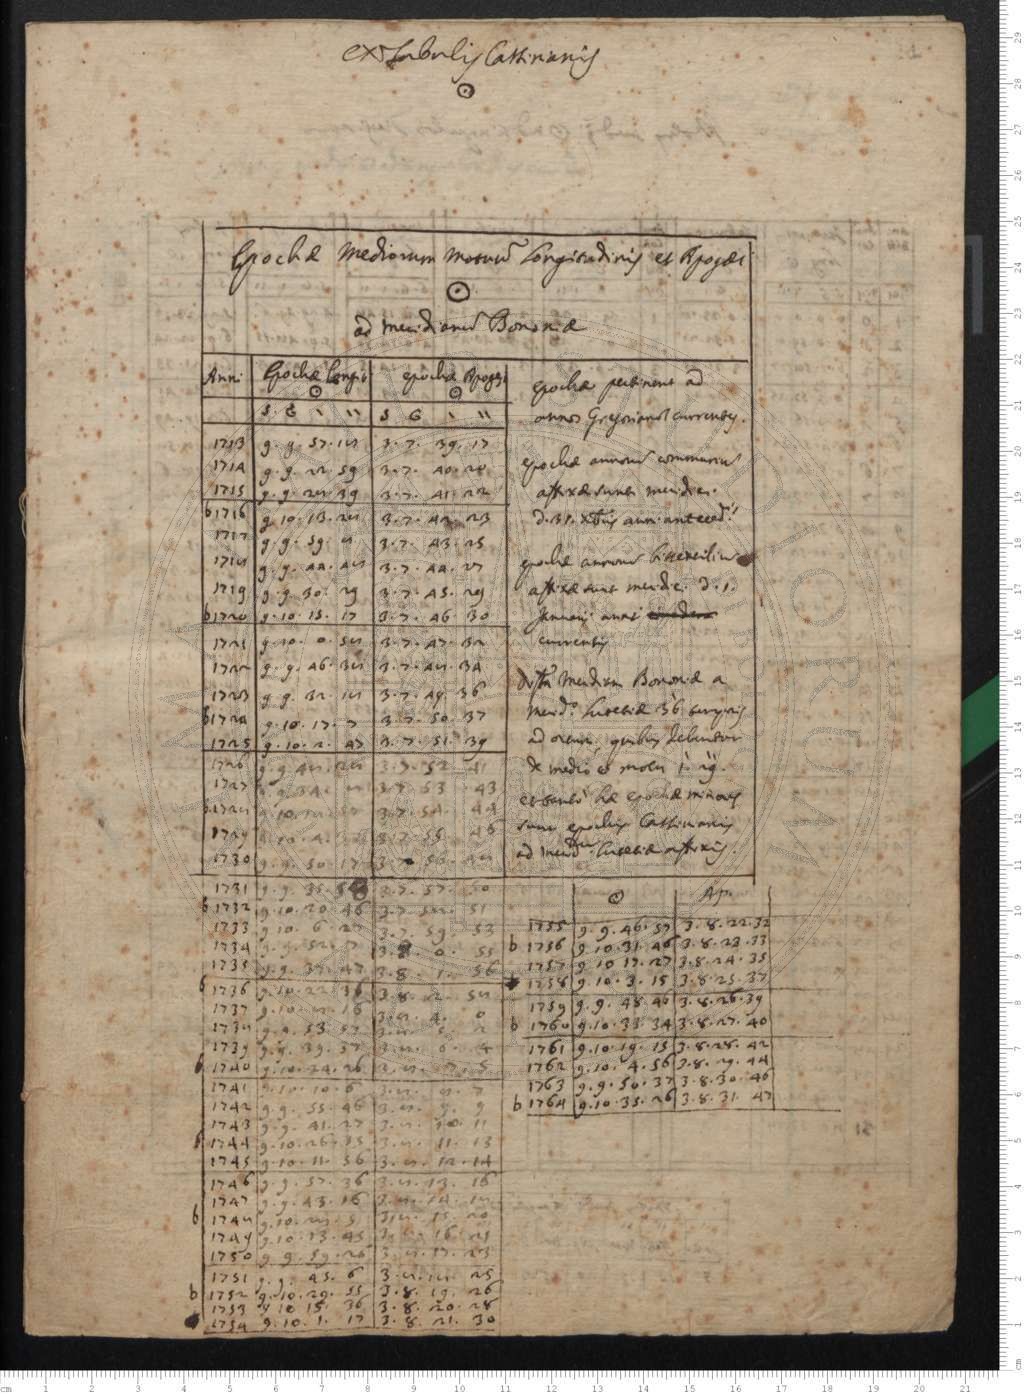 ex Tabulis Cassinianis
☉
Epochæ Mediorum Motuū Longitudinis et Apogæi
☉
ad meridianū Bononiæ
Anni Epochæ Longit. ☉ epochæ Apogæi ☉
S G ' '' S G ' ''
1713 9. 9. 57. 18 3. 7. 39. 17
1714 9. 9. 42. 59 3. 7. 40. 20
1715 9. 9. 28. 39 3. 7. 41. 22
b 1716 9. 10. 13. 28 3. 7. 42. 23
1717 9. 9. 59. 8 3. 7. 43. 25
1718 9. 9. 44. 48 3. 7. 44. 27
1719 9. 9. 30. 29 3. 7. 45. 29
b 1720 9. 10. 15. 17 3. 7. 46. 30
1721 9. 10. 0. 58 3. 7. 47. 32
1722 9. 9. 46. 38 3. 7. 48. 34
1723 9. 9. 32. 18 3. 7. 49. 36
b 1724 9. 10. 17. 7 3. 7. 50. 37
1725 9. 10. 2. 47 3. 7. 51. 39
1726 9. 9. 48. 28 3. 7. 52. 41
1727 9. 9. 34. 8 3. 7. 53. 43
b 1728 9. 10. 18. 57 3. 7. 54. 44
1729 9. 10. 4. 37 3. 7. 55. 46
1730 9. 9. 50. 17 3. 7. 56. 48
1731 9. 9. 35. 58 3. 7. 57. 50
b 1732 9. 10. 20. 46 3. 7. 58. 51
1733 9. 10. 6. 27 3. 7. 59. 53
1734 9. 9. 52. 7 3. 8. 0. 55
1735 9. 9. 37. 47 3. 8. 1. 56
b 1736 9. 10. 22. 36 3. 8. 2. 58
1737 9. 10. 8. 16 3. 8. 4. 0
1738 9. 9. 53. 57 3. 8. 5. 2
1739 9. 9. 39. 37 3. 8. 6. 4
b 1740 9. 10. 24. 26 3. 8. 7. 5
1741 9. 10. 10. 6 3. 8. 8. 7
1742 9. 9. 55. 46 3. 8. 9. 9
1743 9. 9. 41. 27 3. 8. 10. 11
b 1744 9. 10. 26. 15 3. 8. 11. 13
1745 9. 10. 11. 56 3. 8. 12. 14
1746 9. 9. 57. 36 3. 8. 13. 16
1747 9. 9. 43. 16 3. 8. 14. 18
b 1748 9. 10. 28. 5 3. 8. 15. 20
1749 9. 10. 13. 45 3. 8. 16. 21
1750 9. 9. 59. 26 3. 8. 17. 23
1751 9. 9. 45. 6 3. 8. 18. 25
b 1752 9. 10. 29. 55 3. 8. 19. 26
1753 9. 10. 15. 36 3. 8. 20. 28
1754 9. 10. 1. 17 3. 8. 21. 30
epochæ pertinent ad
annos Gregorianos currentes.
epochæ annorū communiū
affixæ sunt meridiei
d. 31. Xbris anni anteced.
epochæ annorū bissextiliū
affixæ sunt meridiei d. 1.
Januarij anni
currentis
Distā Meridiani Bononiæ a
merid. Lutetiæ 36' temporis
ad orien. quibus debentur
de medio motu 1' 29''.
et tanto hæ epochæ minores
sunt epochis Cassinianis
ad merid. Lutetiæ affixis.
☉ Ap.
1755 9. 9. 46. 57 3. 8. 22. 32
b 1756 9. 10. 31. 46 3. 8. 23. 33
1757 9. 10. 17. 27 3. 8. 24. 35
1758 9. 10. 3. 15 3. 8. 25. 37
1759 9. 9. 48. 46 3. 8. 26. 39
b 1760 9. 10. 33. 34 3. 8. 27. 40
1761 9. 10. 19. 15 3. 8. 28. 42
1762 9. 10. 4. 56 3. 8. 29. 44
1763 9. 9. 50. 37 3. 8. 30. 46
b 1764 9. 10. 35. 26 3. 8. 31. 47